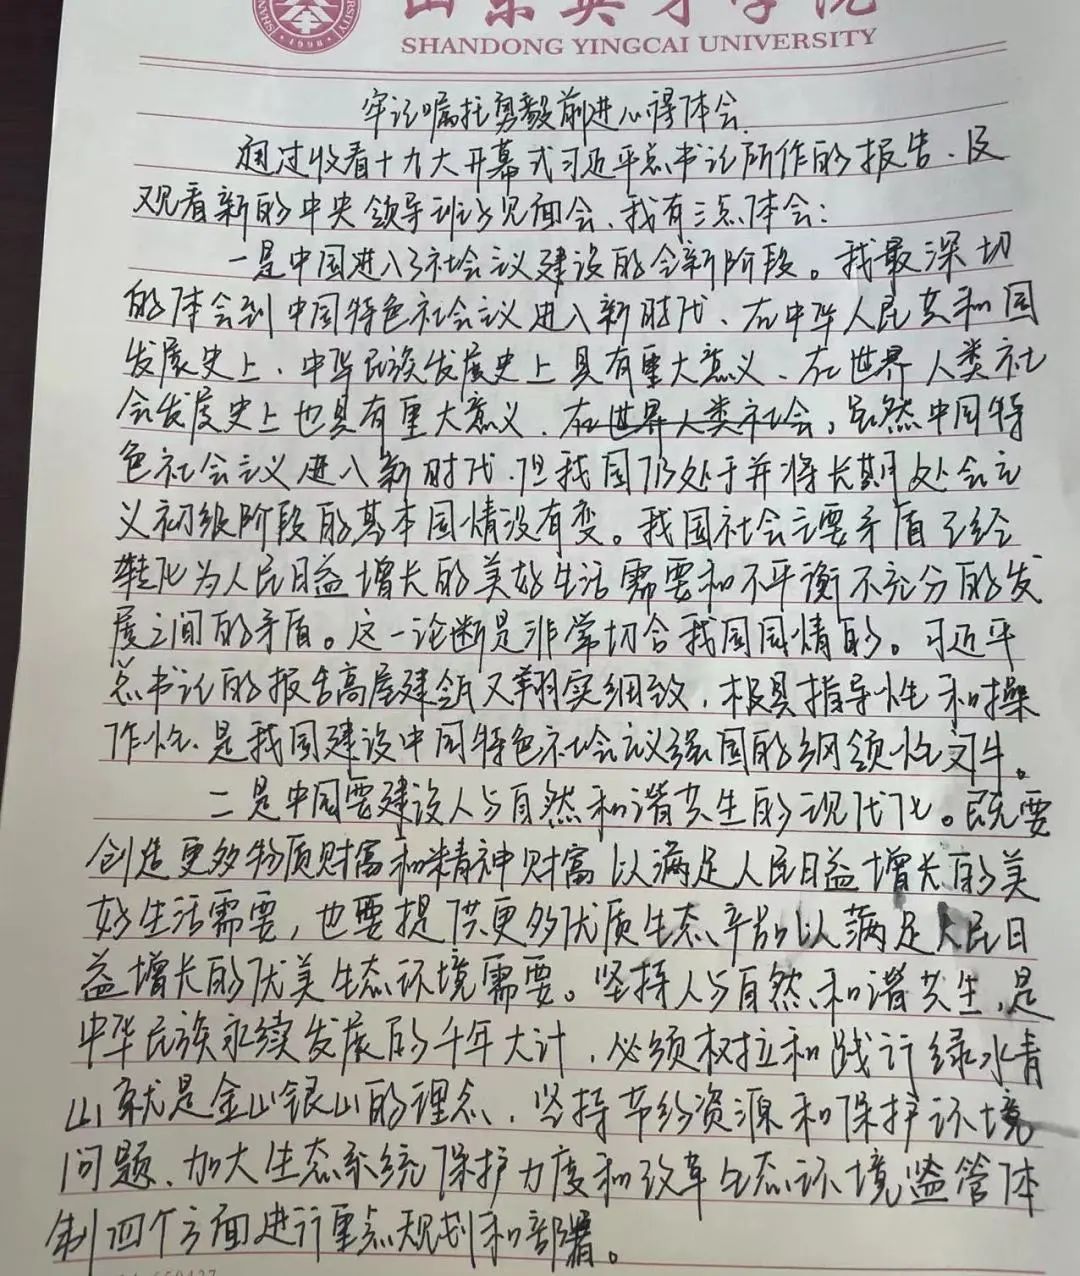 山东英才学院
SHANDONG YINGCAI UNIVERSITY
1998
牢记嘱托勇毅前进心得体会
通过收看十九大开幕式习近平总书记所作的报告、及
观看新的中央领导班子见面会、我有三点体会：
一是中国进入了社会主义建设的全新阶段。我最深切
的体会到中国特色社会主义进入新时代、在中华人民共和国
发展史上、中华民族发展史上具有重大意义、在世界人类社
会发展史上也具有重大意义、在世界人类社会，虽然中国特
色社会主义进入新时代，但我国仍处于并将长期处会主
义初级阶段的基本国情没有变。我国社会主要矛盾已经
转化为人民日益增长的美好生活需要和不平衡不充分的发
展之间的矛盾。这一论断是非常切合我国国情的。习近平
总书记的报告高屋建瓴又翔实细致，极具指导性和操
作性、是我国建设中国特色社会主义强国的纲领性文件。
二是中国要建设人与自然和谐共生的现代化。既要
创造更多物质财富和精神财富以满足人民日益增长的美
好生活需要，也要提供更多优质生态产品以满足人民日
益增长的优美生态环境需要。坚持人与自然和谐共生，是
中华民族永续发展的千年大计，必须树立和践行绿水青
山就是金山银山的理念、坚持节约资源和保护环境
问题、加大生态系统保护力度和改革生态环境监管体
制四个方面进行重点规划和部署。